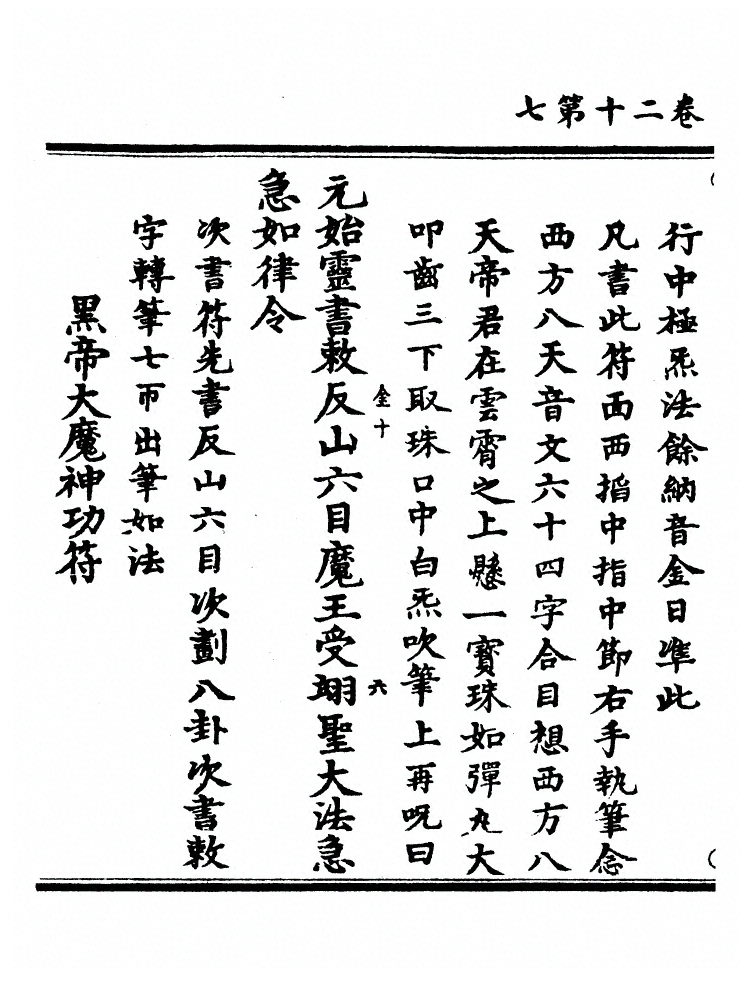 卷二十第七
行中極炁法餘納音金日準此
凡書此符面西掐中指中節右手執筆念
西方八天音文六十四字合目想西方八
天帝君在雲霄之上懸一寶珠如彈丸大
叩齒三下取珠口中白炁吹筆上再呪曰
金十 六
元始靈書敕反山六目魔王受翊聖大法急
急如律令
次書符先書反山六目次劃八卦次書敕
字轉筆七帀出筆如法
黑帝大魔神功符